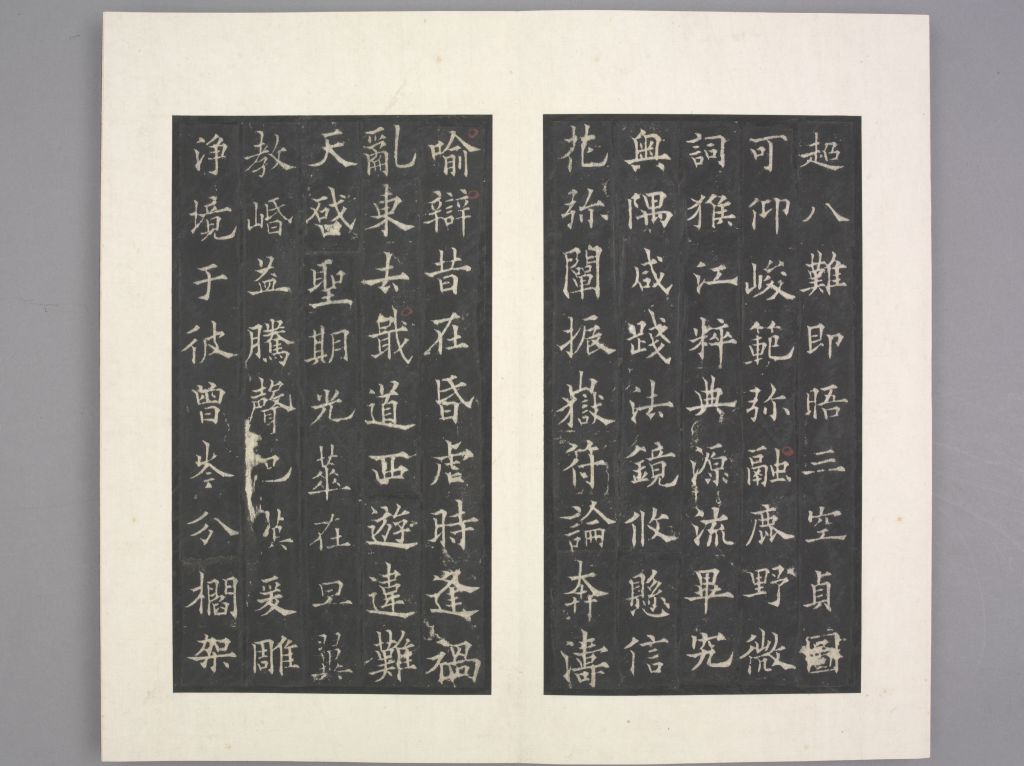 超八難即晤三空貞圖
可仰峻範弥融鹿野微
詞猴江粹典源流畢究
奥隅咸踐法鏡攸懸信
花弥闡振嶽符論奔濤
喻辯昔在昏虐時逢禍
亂東去戢道西遊違難
天啓聖期光華在旦翼
教岷益騰聲巴漢爰雕
淨境于彼曾岑分櫩架